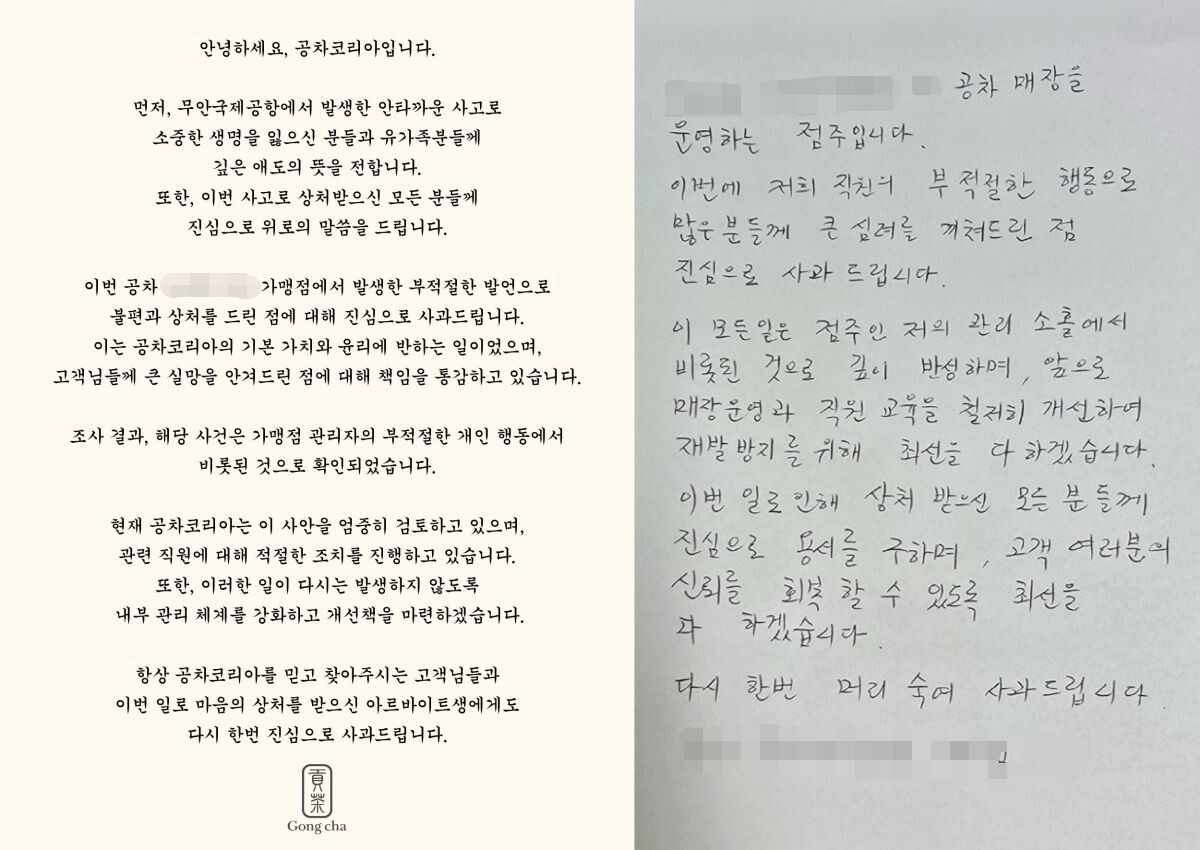 안녕하세요, 공차코리아입니다.
먼저, 무안국제공항에서 발생한 안타까운 사고로
소중한 생명을 잃으신 분들과 유가족분들께
깊은 애도의 뜻을 전합니다.
또한, 이번 사고로 상처받으신 모든 분들께
진심으로 위로의 말씀을 드립니다.
이번 공차 가맹점에서 발생한 부적절한 발언으로
불편과 상처를 드린 점에 대해 진심으로 사과드립니다.
이는 공차코리아의 기본 가치와 윤리에 반하는 일이었으며,
고객님들께 큰 실망을 안겨드린 점에 대해 책임을 통감하고 있습니다.
조사 결과, 해당 사건은 가맹점 관리자의 부적절한 개인 행동에서
비롯된 것으로 확인되었습니다.
현재 공차코리아는 이 사안을 엄중히 검토하고 있으며,
관련 직원에 대해 적절한 조치를 진행하고 있습니다.
또한, 이러한 일이 다시는 발생하지 않도록
내부 관리 체계를 강화하고 개선책을 마련하겠습니다.
항상 공차코리아를 믿고 찾아주시는 고객님들과
이번 일로 마음의 상처를 받으신 아르바이트생에게도
다시 한번 진심으로 사과드립니다.
貢茶
Gong cha
공차 매장을
운영하는 점주입니다.
이번에 저희 직원의 부적절한 행동으로
많은 분들께 큰 심려를 끼쳐드린 점
진심으로 사과 드립니다.
이 모든일은 점주인 저의 관리 소홀에서
비롯된 것으로 깊이 반성하며, 앞으로
매장운영과 직원 교육을 철저히 개선하여
재발방지를 위해 최선을 다하겠습니다.
이번 일로 인해 상처 받으신 모든 분들께
진심으로 용서를 구하며, 고객 여러분의
신뢰를 회복 할 수 있도록 최선을
다 하겠습니다.
다시 한번 머리 숙여 사과드립니다.